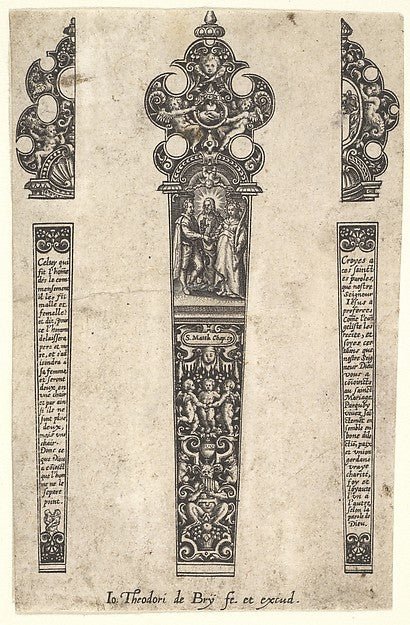 Celuy qui
fit l'hõme
dés le com
mensement
il les fit
masle et
femelle:
et dit, Pour
ce l'homme
delaissera
pere et me
re, et s'ad
ioindra à
sa femme
et seront
deux en
vne chair
et par ain
si ils ne
sont plus
deux,
mais vne
chair.
Donc ce
que Dieu
a conioict
que l'hom
me ne le
separe
point.
S. Matth. Chap. 19
Croyez a
ces sainctz
es paroles,
que nostre
Seigneur
Iesus a
proferez
Cõme l'euã
geliste les
recite, et
soyez cer
tains que
nostre Seig
neur Dieu
vous a
conioinctz
au sainct
Mariage
Parquoy
vivez sai
ctement en
semble en
bonne dile
ctiõ, paix
et vnion
gardans
vraye
charité,
foy et
loyauté
l'vn à
l'autre
selon la
parole de
Dieu.
Io. Theodori de Brÿ fe. et excud.